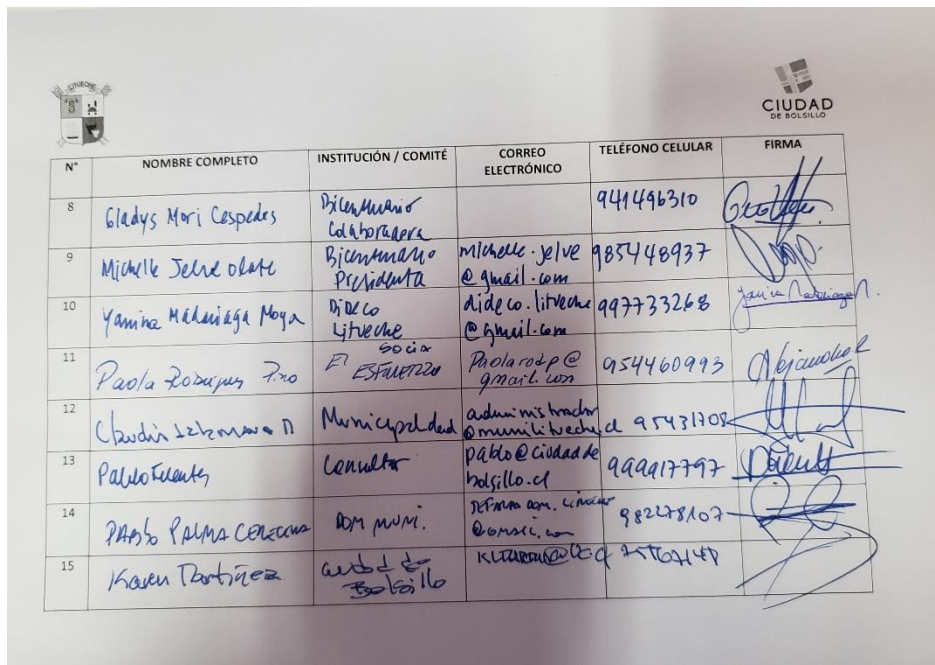 LITUECHE
CIUDAD
DE BOLSILLO
N° NOMBRE COMPLETO INSTITUCIÓN / COMITÉ CORREO ELECTRÓNICO TELÉFONO CELULAR FIRMA
8 Gladys Mori Cespedes Bicentenario Colaboradora 941496310
9 Michelle Jelve Olate Bicentenario Presidenta michelle.jelve@gmail.com 985448937
10 Yamina Madariaga Moya Dideco Litueche dideco.litueche@gmail.com 997733268
11 Paola Rodriguez Pino Socia El Esfuerzo Paolarodp@gmail.com 954460993
12 Claudia Municipalidad administrador@munilitueche.cl 95431708
13 Pablo Fuentes Consultor pablo@ciudaddebolsillo.cl 999917797
14 PABLO PALMA DOM MUNI. @GMAIL.com 982278107
15 Karen Martinez Ciudad de Bolsillo